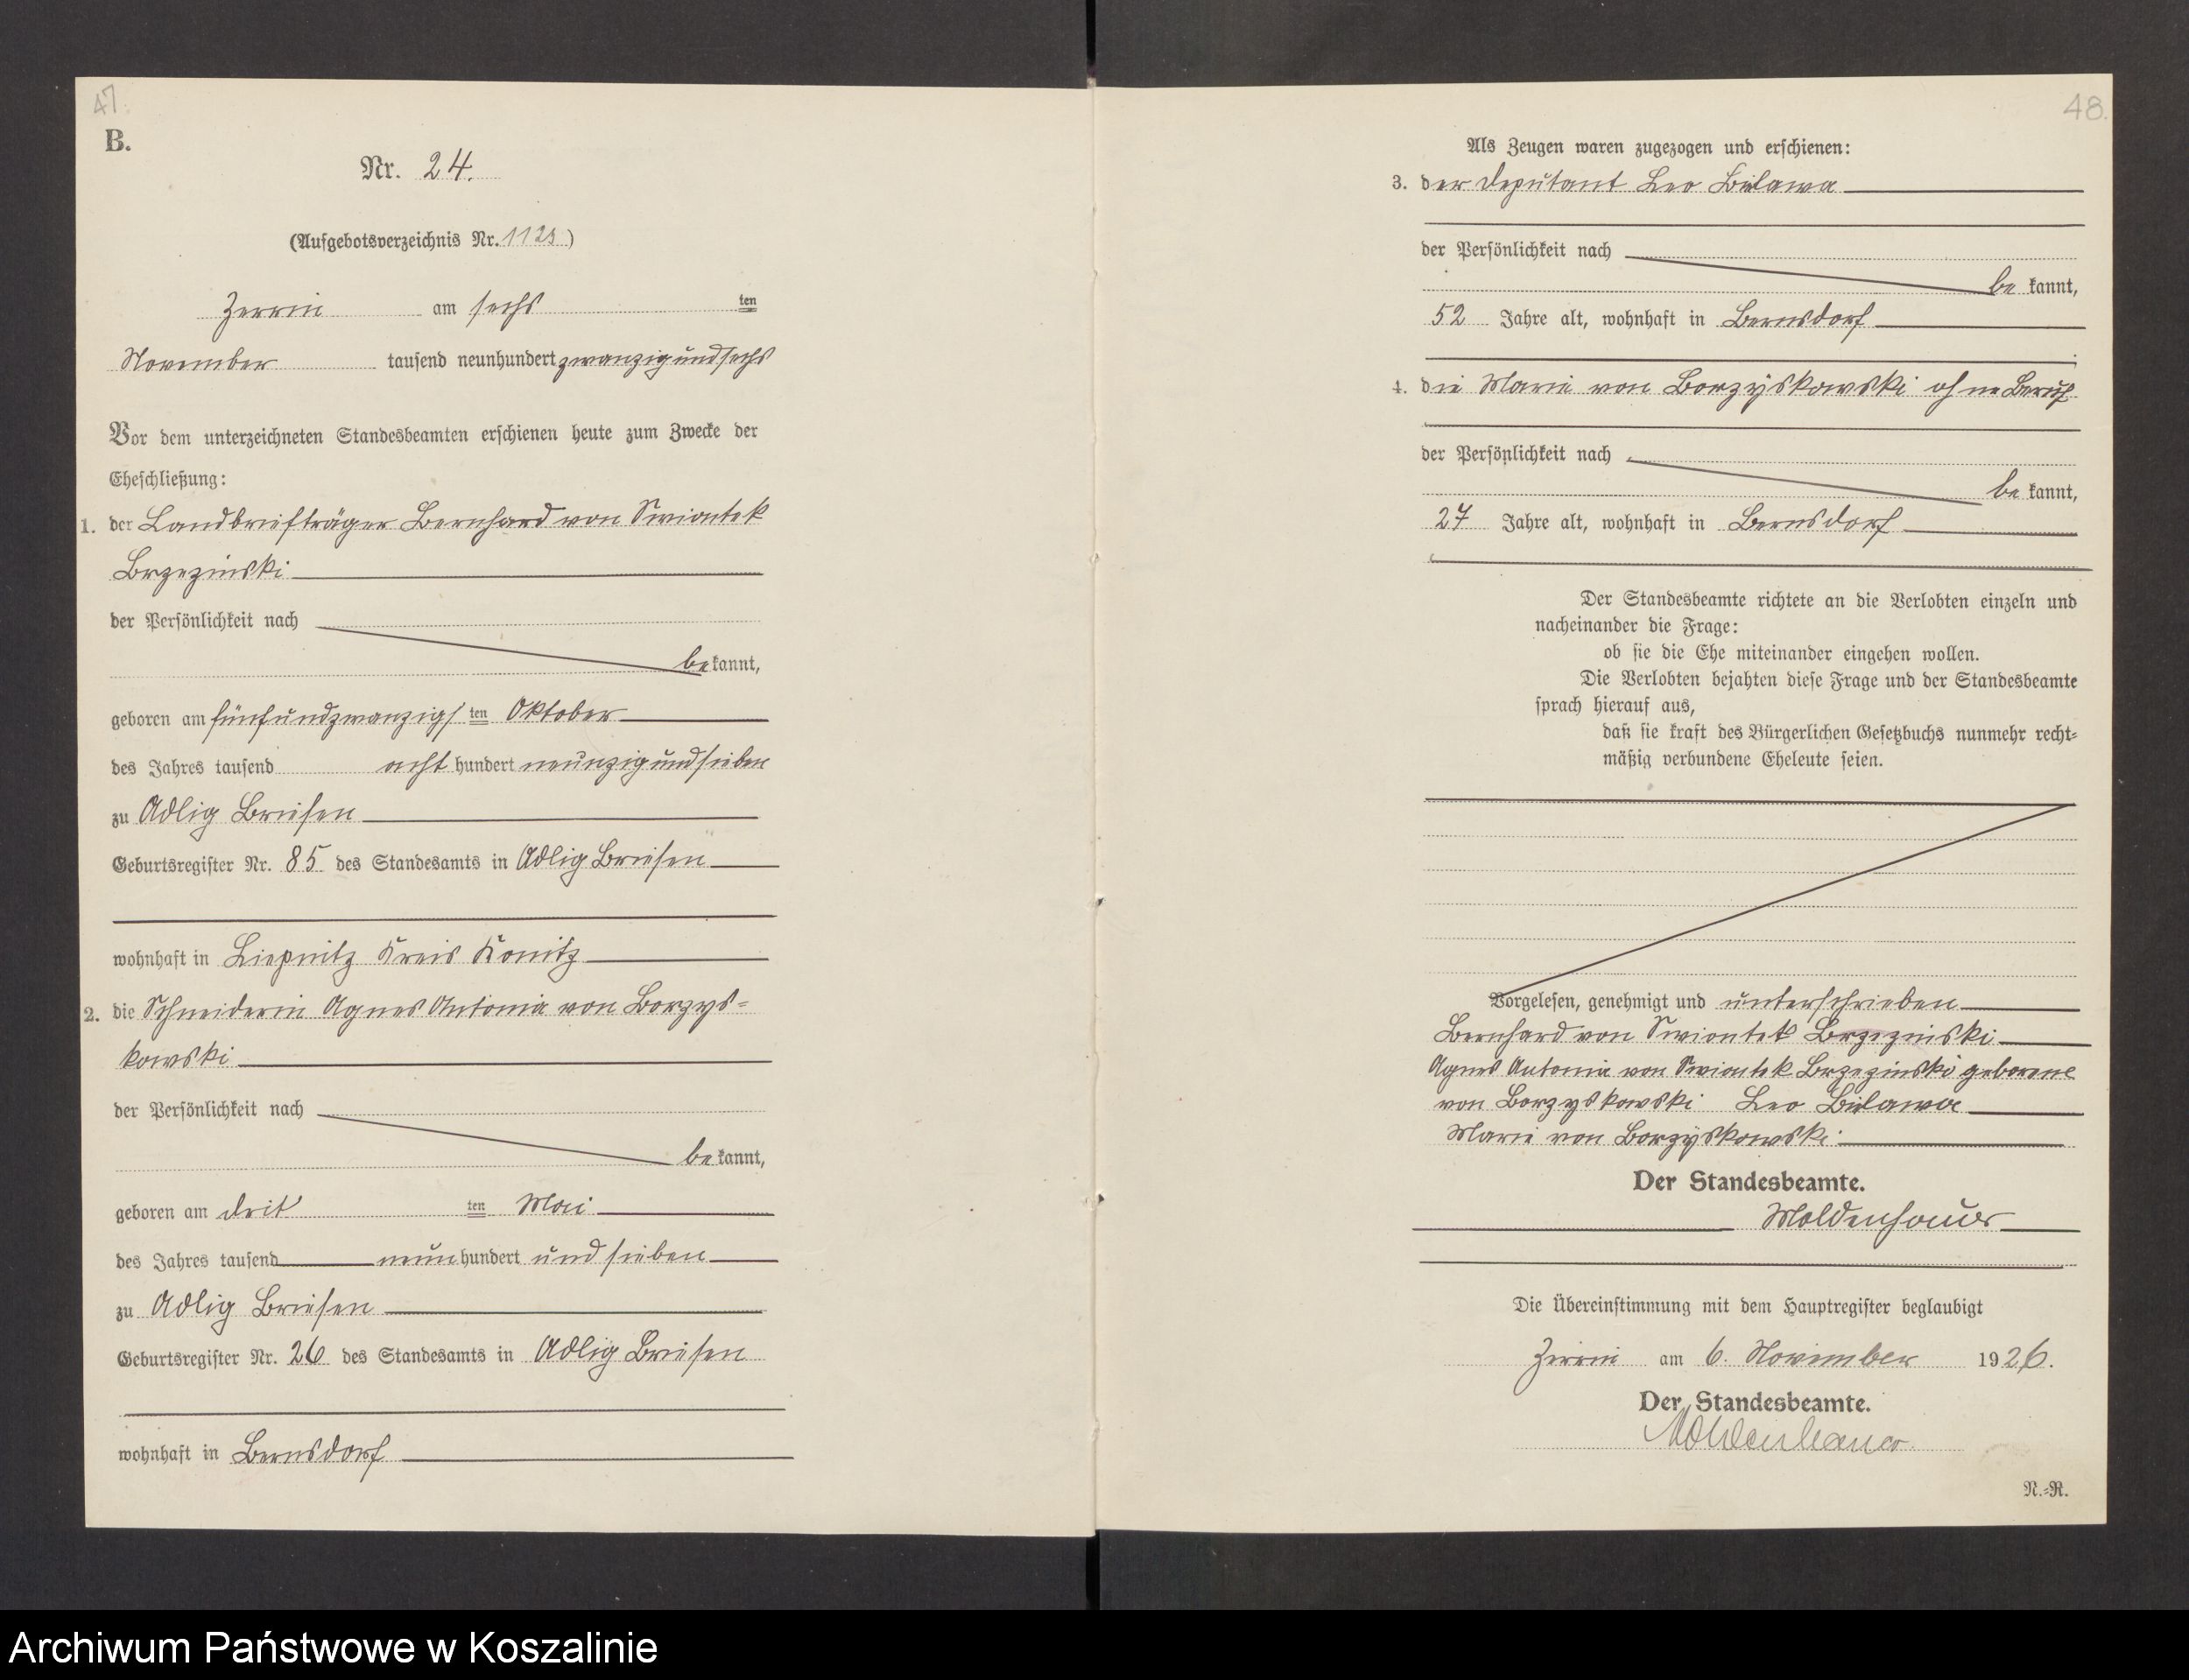 47.
B.
Nr. 24.
(Aufgebotsverzeichnis Nr. 1123)
Zerrin am sechsten
November tausend neunhundert zwanzigundsechs
Vor dem unterzeichneten Standesbeamten erschienen heute zum Zwecke der
Eheschließung:
1. der Landbriefträger Bernhard von Swiontek
Brzezinski
der Persönlichkeit nach
bekannt,
geboren am fünfundzwanzigsten Oktober
des Jahres tausend acht hundert neunzigundsieben
zu Adlig Briesen
Geburtsregister Nr. 85 des Standesamts in Adlig Briesen
wohnhaft in Liepnitz Kreis Konitz
2. die Schneiderin Agnes Antonia von Borzys=
kowski
der Persönlichkeit nach
bekannt,
geboren am dritten Mai
des Jahres tausend neunhundert und sieben
zu Adlig Briesen
Geburtsregister Nr. 26 des Standesamts in Adlig Briesen
wohnhaft in Bernsdorf
48.
Als Zeugen waren zugezogen und erschienen:
3. der Deputant Leo Bielawa
der Persönlichkeit nach
bekannt,
52 Jahre alt, wohnhaft in Bernsdorf
4. die Marie von Borzyskowski ohne Beruf
der Persönlichkeit nach
bekannt,
27 Jahre alt, wohnhaft in Bernsdorf
Der Standesbeamte richtete an die Verlobten einzeln und
nacheinander die Frage:
ob sie die Ehe miteinander eingehen wollen.
Die Verlobten bejahten diese Frage und der Standesbeamte
sprach hierauf aus,
daß sie kraft des Bürgerlichen Gesetzbuchs nunmehr recht=
mäßig verbundene Eheleute seien.
Vorgelesen, genehmigt und unterschrieben
Bernhard von Swiontek Brzezinski
Agnes Antonia von Swiontek Brzezinski geborene
von Borzyskowski Leo Bielawa
Marie von Borzyskowski
Der Standesbeamte.
Moldenhauer
Die Übereinstimmung mit dem Hauptregister beglaubigt
Zerrin am 6. November 1926.
Der Standesbeamte.
Moldenhauer
N.=R.
Archiwum Państwowe w Koszalinie